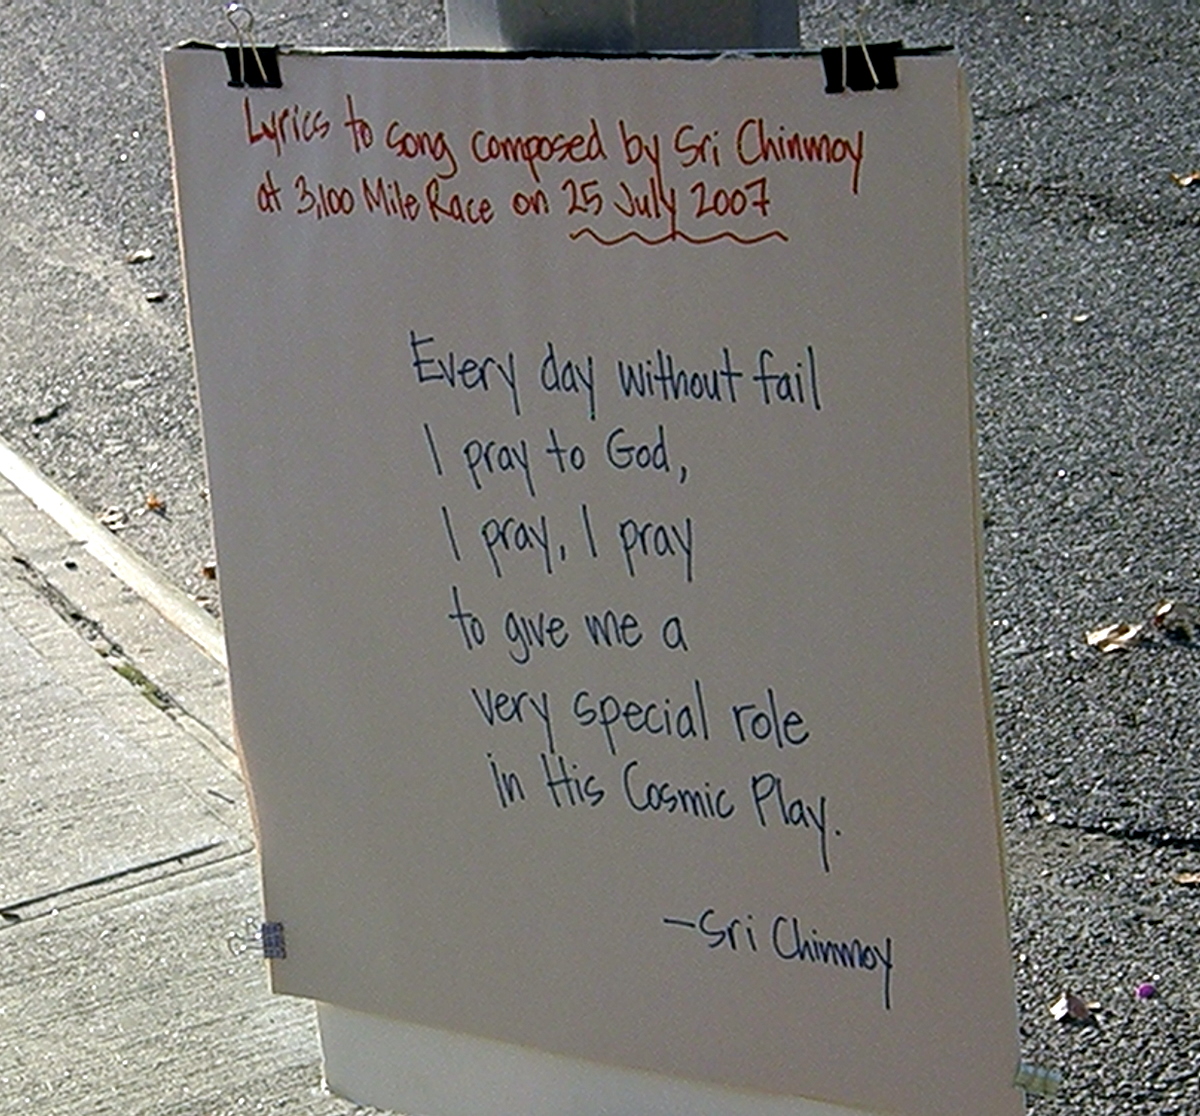 Lyrics to song composed by Sri Chinmoy
at 3,100 Mile Race on 25 July 2007
Every day without fail
I pray to God,
I pray, I pray
to give me a
very special role
in His Cosmic Play.
—Sri Chinmoy